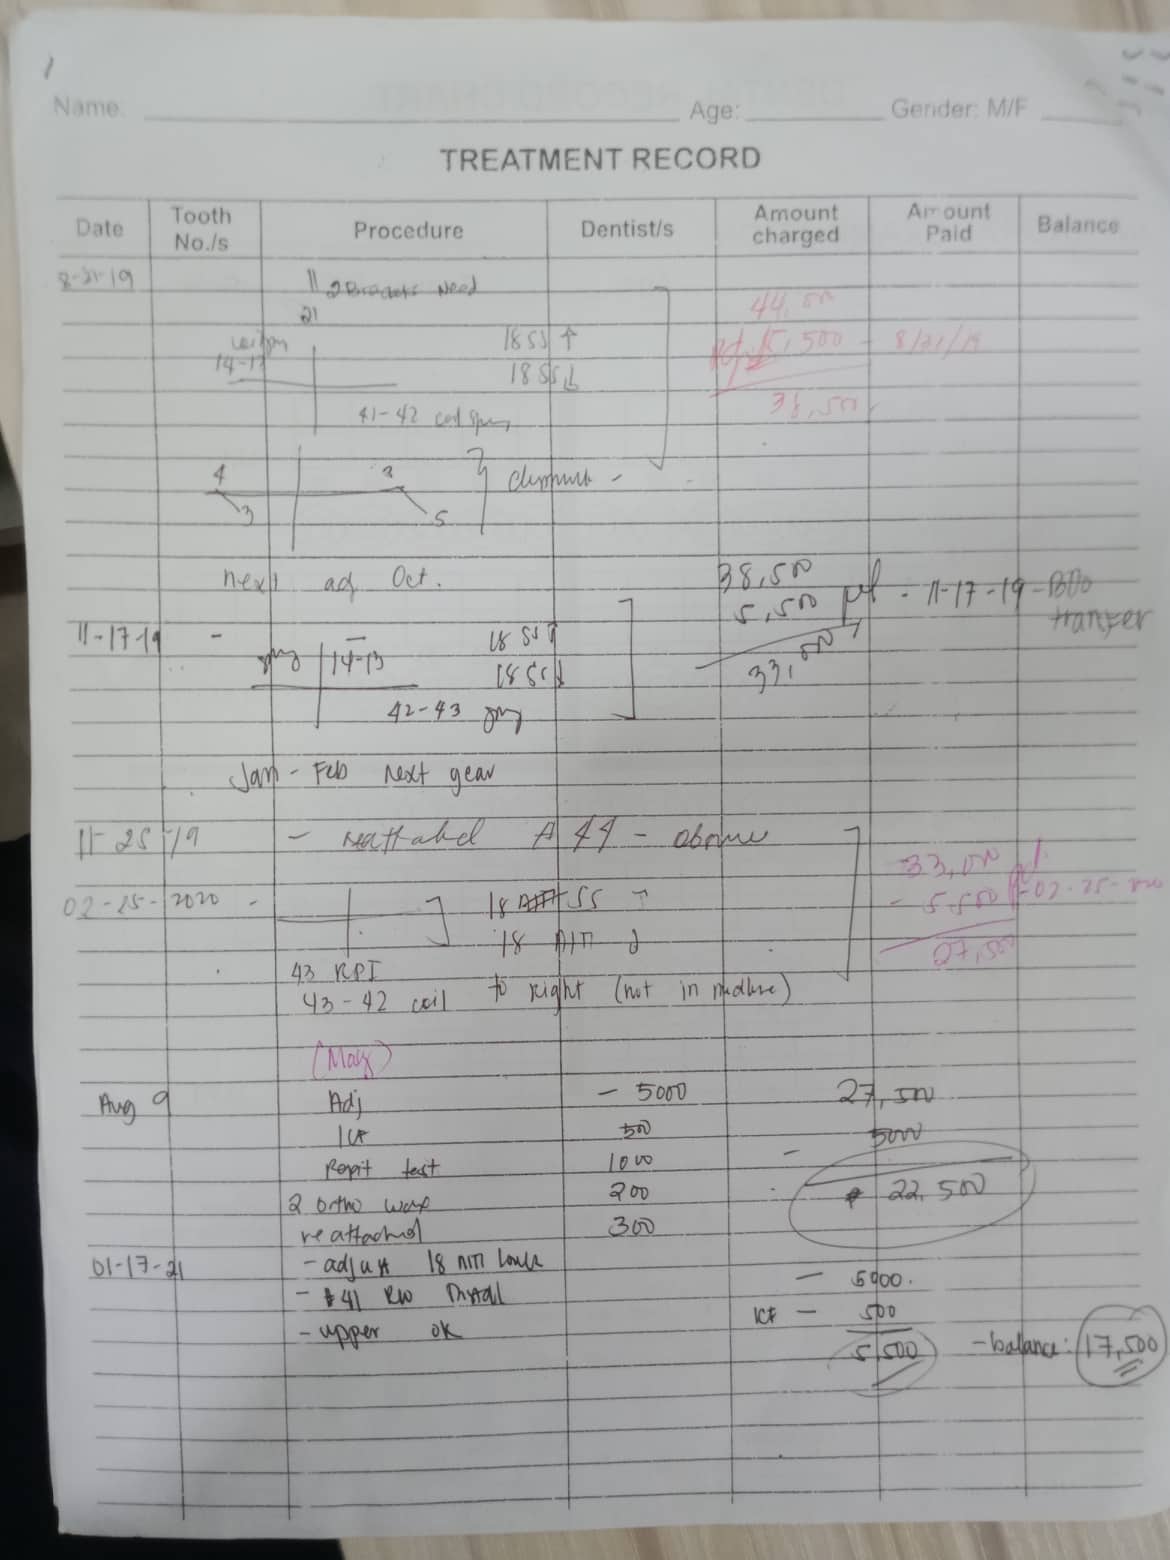 Name: Age: Gender: M/F
TREATMENT RECORD
Date Tooth No./s Procedure Dentist/s Amount charged Amount Paid Balance
8-21-19 11 2 Brackets Need
21 44,000
18 SS ↑ 5,500 - 8/21/19
14-13 18 SS ↓
41-42 coil 38,500
4 3
3 5
next adj Oct. 38,500
5,500 pd - 11-17-19 - BDO transfer
11-17-19 - 18 SS ↑
14-13 18 SS ↓ 33,000
42-43
Jan - Feb next year
11-25-19 - reattached 44 -
33,000
02-25-2020 - 18 SS ↑ - 5,500 pd 02-25-2020
18 NITI ↓ 27,500
43 RPI
43-42 coil to right (not in midline)
(May)
Aug 9 Adj - 5000 27,500
ICF 500 - 5000
Rapit test 1000
2 ortho wax 200 22,500
reattached 300
01-17-21 - adjust 18 NITI lower
- 41 - 5000.
- upper ok ICF - 500
5,500 - balance: 17,500